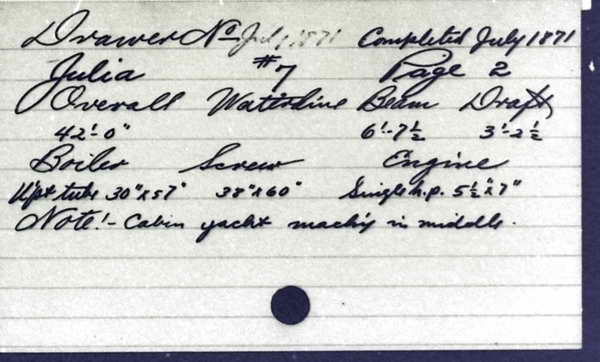 Drawer No July 1871 Completed July 1871
Julia #7 Page 2
Overall Waterline Beam Draft
42'-0" 6'-7½ 3'-2½
Boiler Screw Engine
Upt tube 30"x57" 38"x60" Single h.p. 5½"x7"
Note!- Cabin yacht mach'y in middle.